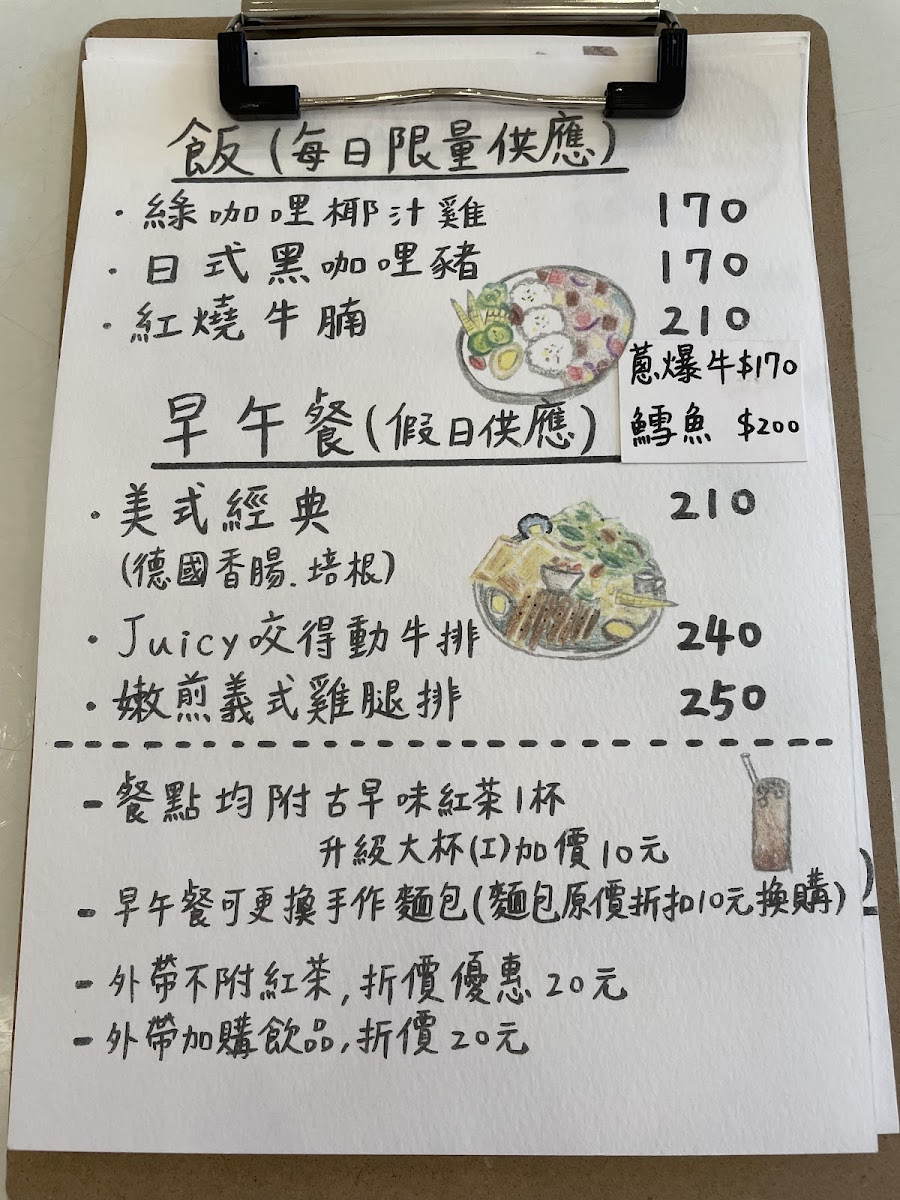 飯(每日限量供應)
·綠咖哩椰汁雞 170
·日式黑咖哩豬 170
·紅燒牛腩 210
蔥爆牛$170
鱈魚 $200
早午餐(假日供應)
·美式經典 210
(德國香腸.培根)
·Juicy咬得動牛排 240
·嫩煎義式雞腿排 250
-餐點均附古早味紅茶1杯
升級大杯(工)加價10元
-早午餐可更換手作麵包(麵包原價折扣10元換購)
-外帶不附紅茶,折價優惠20元
-外帶加購飲品,折價20元